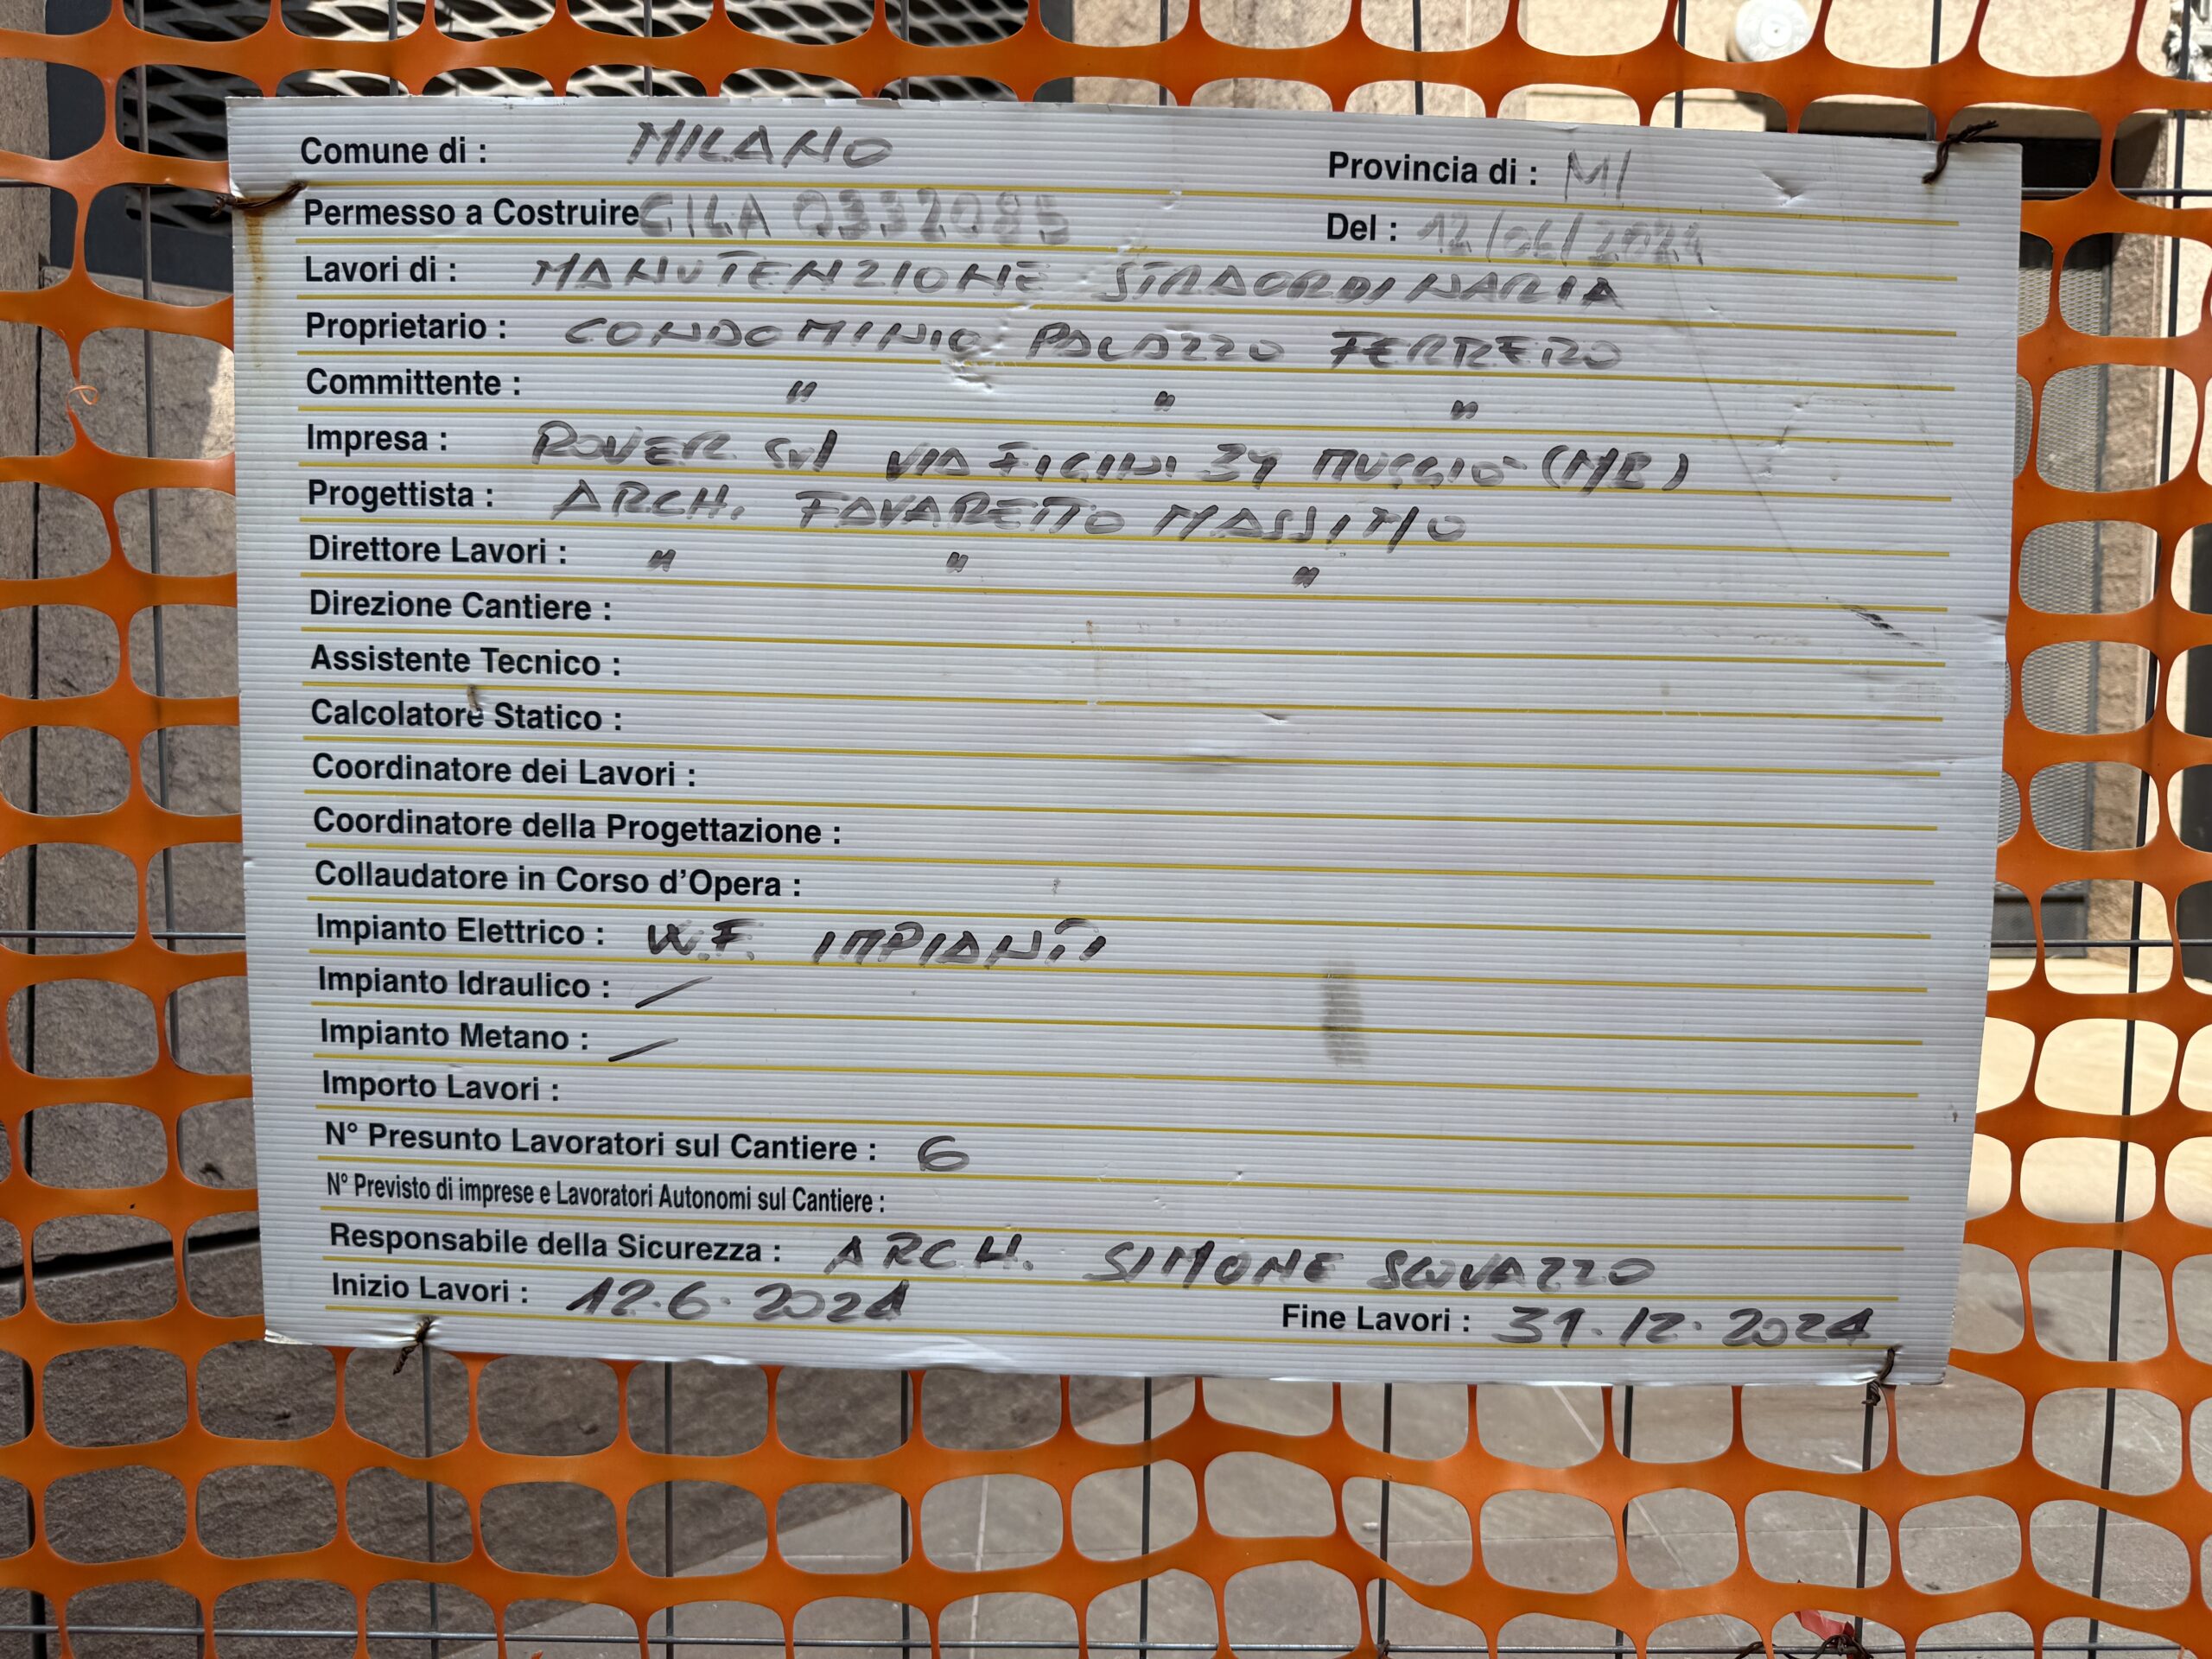 Comune di : MILANO Provincia di : MI
Permesso a Costruire CILA 0332085 Del : 12/06/2024
Lavori di : MANUTENZIONE STRAORDINARIA
Proprietario : CONDOMINIO PALAZZO FERRERO
Committente : " " "
Impresa : ROVER srl VIA FIGINI 34 MUGGIO' (MB)
Progettista : ARCH. FAVARETTO MASSIMO
Direttore Lavori : " " "
Direzione Cantiere :
Assistente Tecnico :
Calcolatore Statico :
Coordinatore dei Lavori :
Coordinatore della Progettazione :
Collaudatore in Corso d'Opera :
Impianto Elettrico : W.F. IMPIANTI
Impianto Idraulico : /
Impianto Metano : /
Importo Lavori :
N° Presunto Lavoratori sul Cantiere : 6
N° Previsto di imprese e Lavoratori Autonomi sul Cantiere :
Responsabile della Sicurezza : ARCH. SIMONE
Inizio Lavori : 12.6.2024 Fine Lavori : 31.12.2024